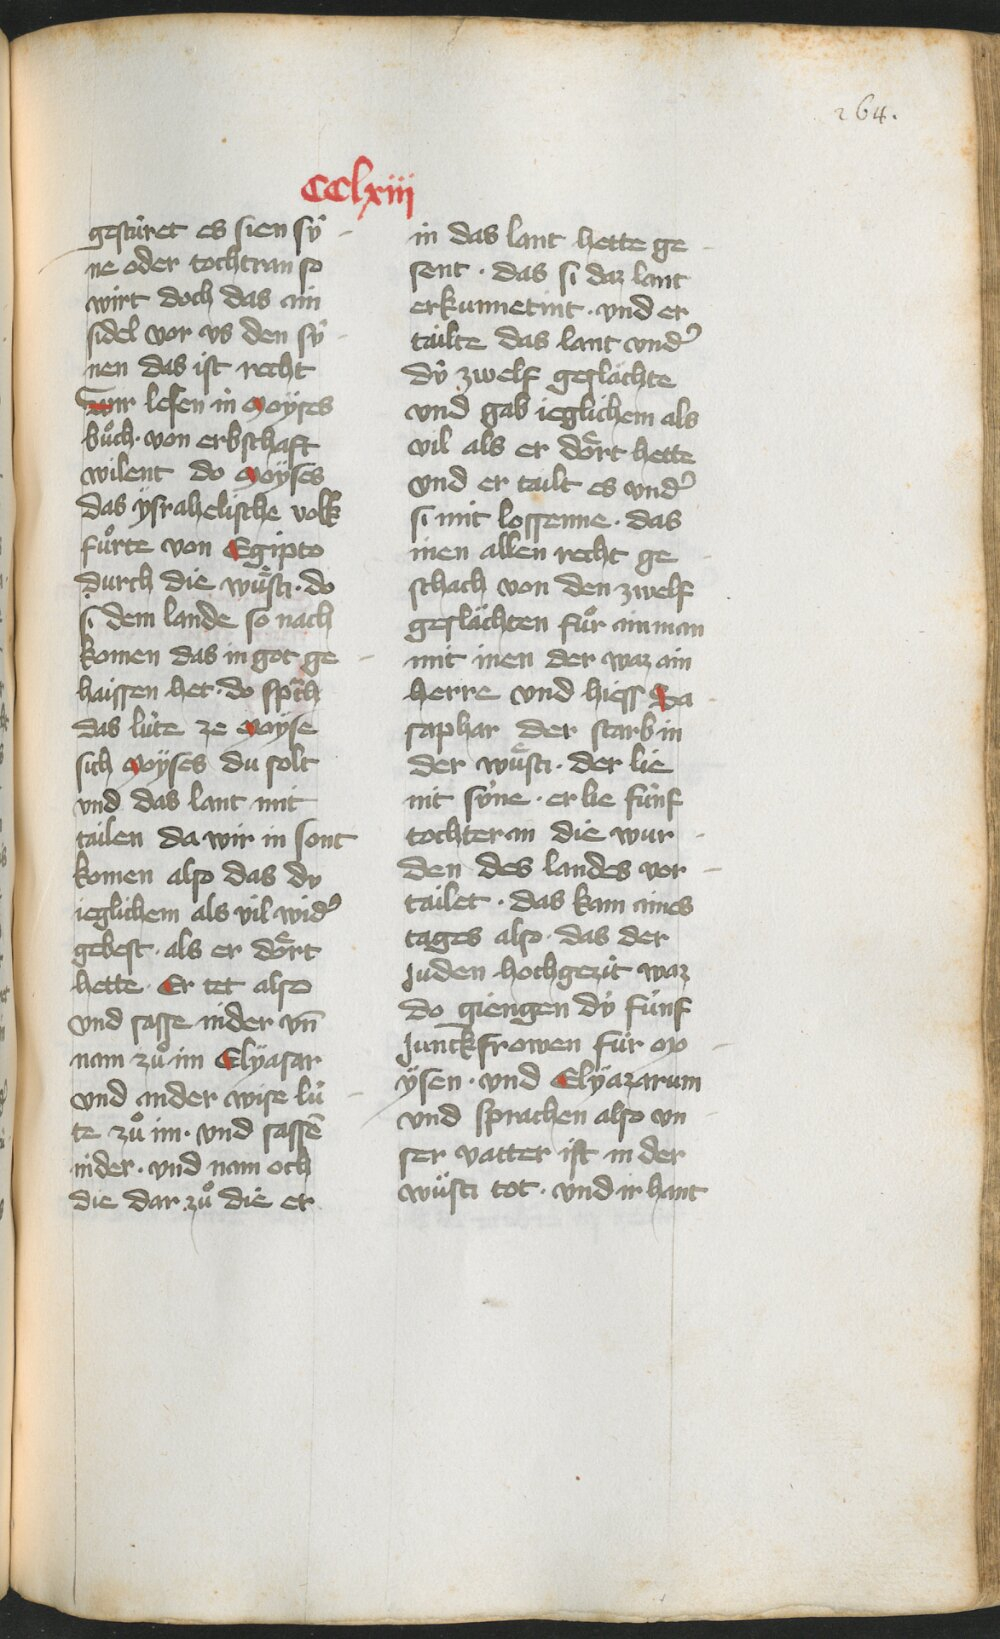 264.
CClxiii
gestúret es sien sẏ̂
ne oder tochtran so
wirt doch das ain
sidel vor vs den sẏ̂
nen das ist recht
Wir lesen in Moÿses
bůch · von erbschaft
wilent do Moÿses
das ÿsrahelische volk
fůrte von Egipto
durch die wůsti · do
si dem lande so nach
komen das in got ge
haissen het · do sprͣch
das lúte ze Moÿse
sich Moÿses du solt
vnd das lant mit
tailen da wir in sont
komen also das dv
ieglichem als vil wid᾽
gebest · als er doͤrt
hette · Er tet also
vnd sasse nider vn̄
nam zů im Elÿasar
vnd ander wise lú
te zů im · vnd sassē
nider · vnd nam och
die dar zů die er
in das lant hette ge
sent · das si daz lant
erkunnetint · vnd er
tailte das lant vnd᾽
dÿ zwelf geslächte
vnd gab ieglichem als
vil als er doͤrt hette
vnd er tailt es vnd᾽
si mit lossenne · das
inen allen recht ge
schach von den zwelf
geslächten fůr ain man
mit inen der waz ain
herre vnd hiess Sa
saphar der starb in
der wuͤsti · der lie
nit sÿne · er lie fúnf
tochteran die wur
den des landes vor
tailet · das kam aines
tages also · das der
Juden hochgezit waz
do giengen dÿ fúnf
Junckfrowen fúr Mo
ÿsen · vnd Elÿazarum
vnd sprachen also vn
ser vatter ist in der
wústi tot · vnd ir hant